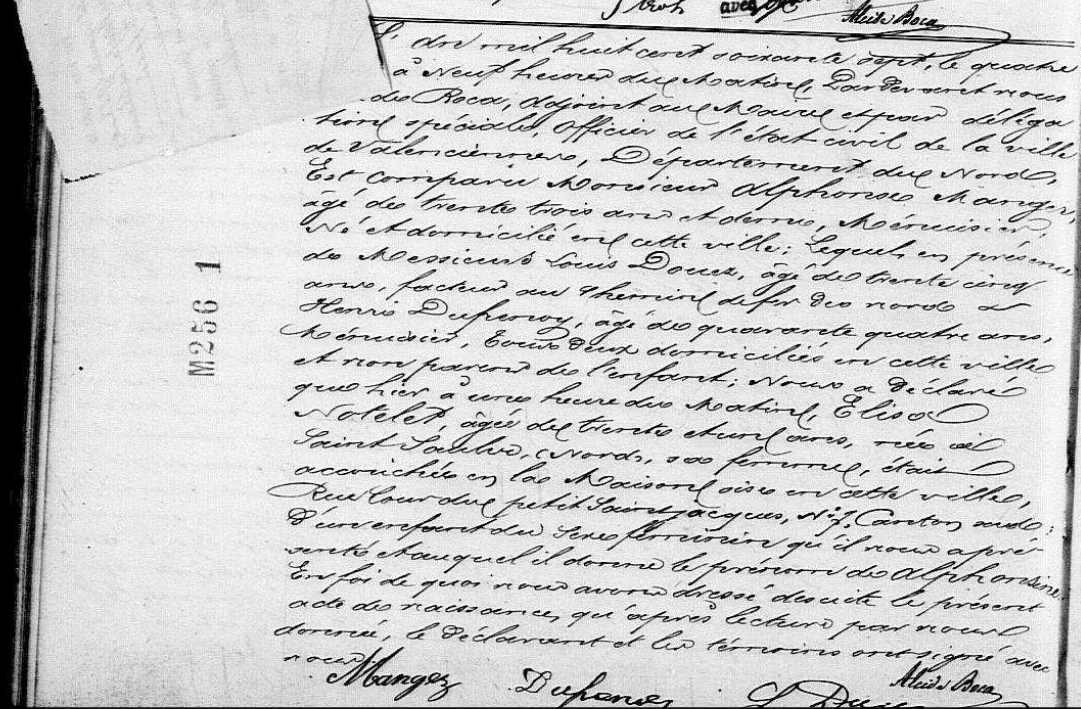 avec
Alcide Boca
L'an mil huit cent soixante sept, le quatre
à Neuf heures du Matin, Pardevant nous
de Boca, adjoint au Maire et par déléga
tion spéciale, officier de l'état civil de la ville
de Valenciennes, Département du Nord,
Est comparu Monsieur Alphonse Mangez,
âgé de trente trois ans et demi, Ménuisier,
Né et domicilié en cette ville; Lequel en présence
de Messieurs Louis Douez, âgé de trente cinq
ans, facteur au chemin de fer du nord et
Henri Dufrenoy, âgé de quarante quatre ans,
Ménuisier, tous deux domiciliés en cette ville
et non parens de l'enfant; Nous a déclaré
que hier à une heure du Matin, Elisa
Notelet, âgée de trente et un ans, née à
Saint Saulve, (Nord), sa femme, était
accouchée en la Maison sise en cette ville,
Rue Cour du petit Saint jacques, N° 7, Canton sud;
D'un enfant du Sexe féminin qu'il nous a pré-
senté et auquel il donne le prénom de Alphonsine
En foi de quoi nous avons dressé de suite le présent
acte de naissance, qu'après lecture par nous
donnée, le déclarant et les témoins ont signé avec
nous.
Mangez Dufrenoy L Douez Alcide Boca
M256 1